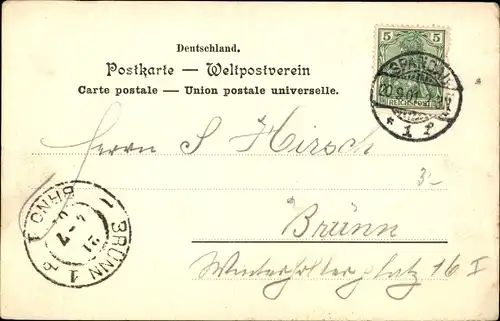 Deutschland.
Postkarte — Weltpostverein
Carte postale — Union postale universelle.
5 5
REICHSPOST
SPANDAU
20.9.01
* 1 f
Herrn S Hirsch
3-
Brünn
Winterhollerplatz 16 I
BRÜNN 1
BRNO
21